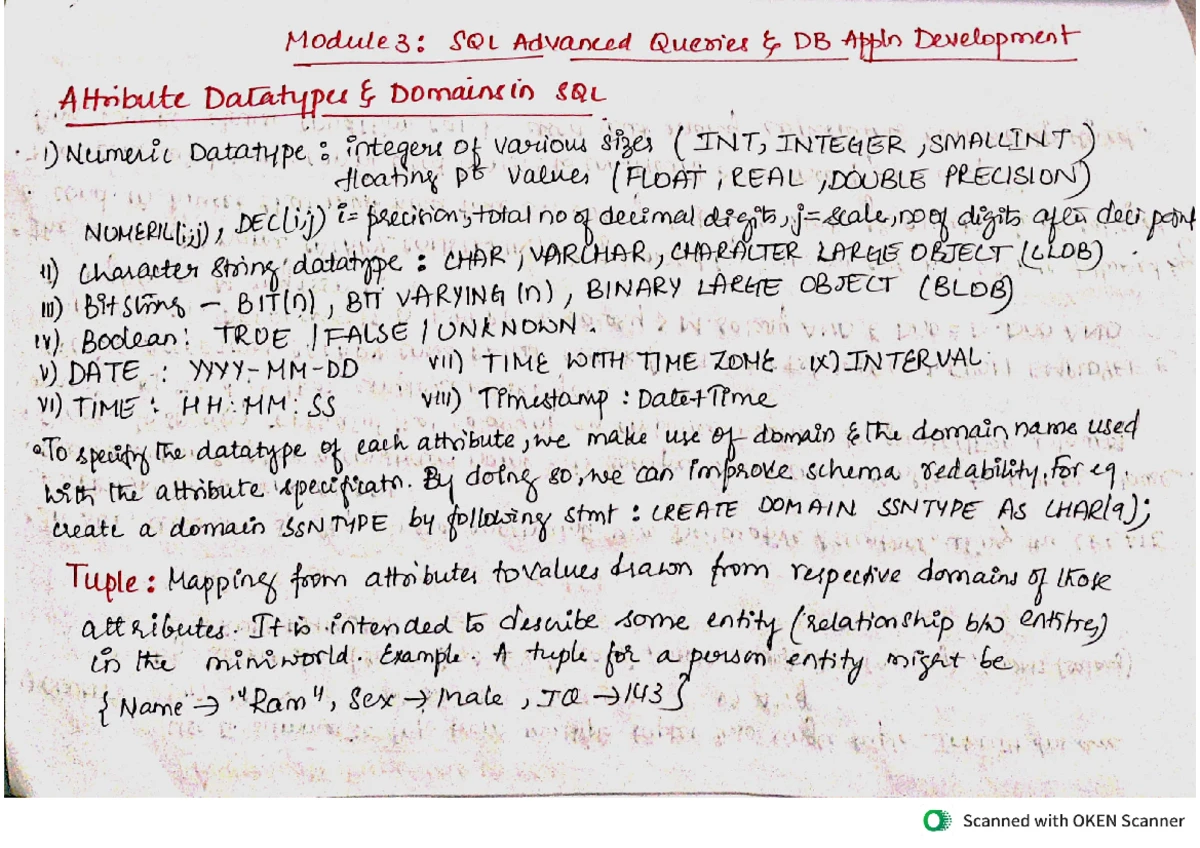 Module 3: SQL Advanced Queries & DB Appln Development
Attribute Datatypes & Domains in SQL
i) Numeric Datatype : integers of various sizes ( INT, INTEGER , SMALLINT )
floating pt values ( FLOAT , REAL , DOUBLE PRECISION)
NUMERIC(i,j) , DEC(i,j) i= precision, total no of decimal digits, j= scale, no of digits after deci point
ii) Character string datatype : CHAR , VARCHAR , CHARACTER LARGE OBJECT (CLOB)
iii) Bit Stings - BIT(n) , BIT VARYING (n) , BINARY LARGE OBJECT (BLOB)
iv) Boolean : TRUE / FALSE / UNKNOWN .
v) DATE : YYYY-MM-DD vii) TIME WITH TIME ZONE ix) INTERVAL
vi) TIME : HH : MM : SS viii) Timestamp : Date+Time
• To specify the datatype of each attribute, we make use of domain & the domain name used
with the attribute specificatn. By doing so, we can improve schema redability. for eg.
create a domain SSNTYPE by following stmt : CREATE DOMAIN SSNTYPE AS CHAR(9);
Tuple : Mapping from attributes to values drawn from respective domains of those
attributes. It is intended to describe some entity (relationship b/w entities)
in the miniworld. Example. A tuple for a person entity might be
{ Name → "Ram", Sex → Male , IQ → 143 }
Scanned with OKEN Scanner